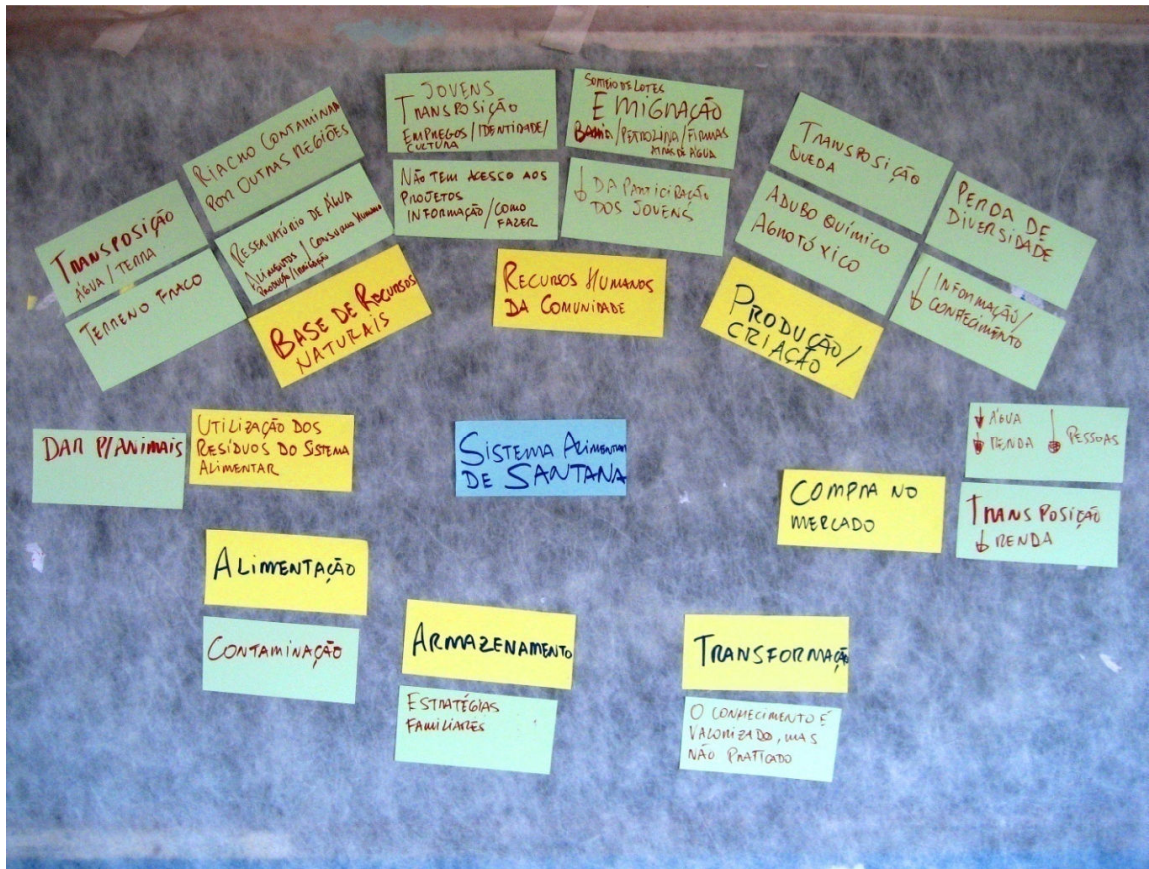 TRANSPOSIÇÃO
ÁGUA / TERRA
TERRENO FRACO
RIACHO CONTAMINA
POR OUTRAS REGIÕES
RESERVATÓRIO DE ÁGUA
ALIMENTOS / CONSUMO HUMANO
PRODUÇÃO / IRRIGAÇÃO
BASE DE RECURSOS
NATURAIS
JOVENS
TRANSPOSIÇÃO
EMPREGOS / IDENTIDADE /
CULTURA
NÃO TEM ACESSO AOS
PROJETOS
INFORMAÇÃO / COMO
FAZER
SORTEIO DE LOTES
EMIGRAÇÃO
BAHIA / PETROLINA / FIRMAS
ATRAS DE ÁGUA
↓ DA PARTICIPAÇÃO
DOS JOVENS
RECURSOS HUMANOS
DA COMUNIDADE
TRANSPOSIÇÃO
QUEDA
ADUBO QUÍMICO
AGROTÓXICO
PRODUÇÃO /
CRIAÇÃO
PERDA DE
DIVERSIDADE
↓ INFORMAÇÃO /
CONHECIMENTO
DAR P/ANIMAIS
UTILIZAÇÃO DOS
RESÍDUOS DO SISTEMA
ALIMENTAR
SISTEMA ALIMENTAR
DE SANTANA
COMPRA NO
MERCADO
↓ ÁGUA
↓ RENDA ↓ PESSOAS
TRANSPOSIÇÃO
↓ RENDA
ALIMENTAÇÃO
CONTAMINAÇÃO
ARMAZENAMENTO
ESTRATÉGIAS
FAMILIARES
TRANSFORMAÇÃO
O CONHECIMENTO É
VALORIZADO, MAS
NÃO PRATICADO